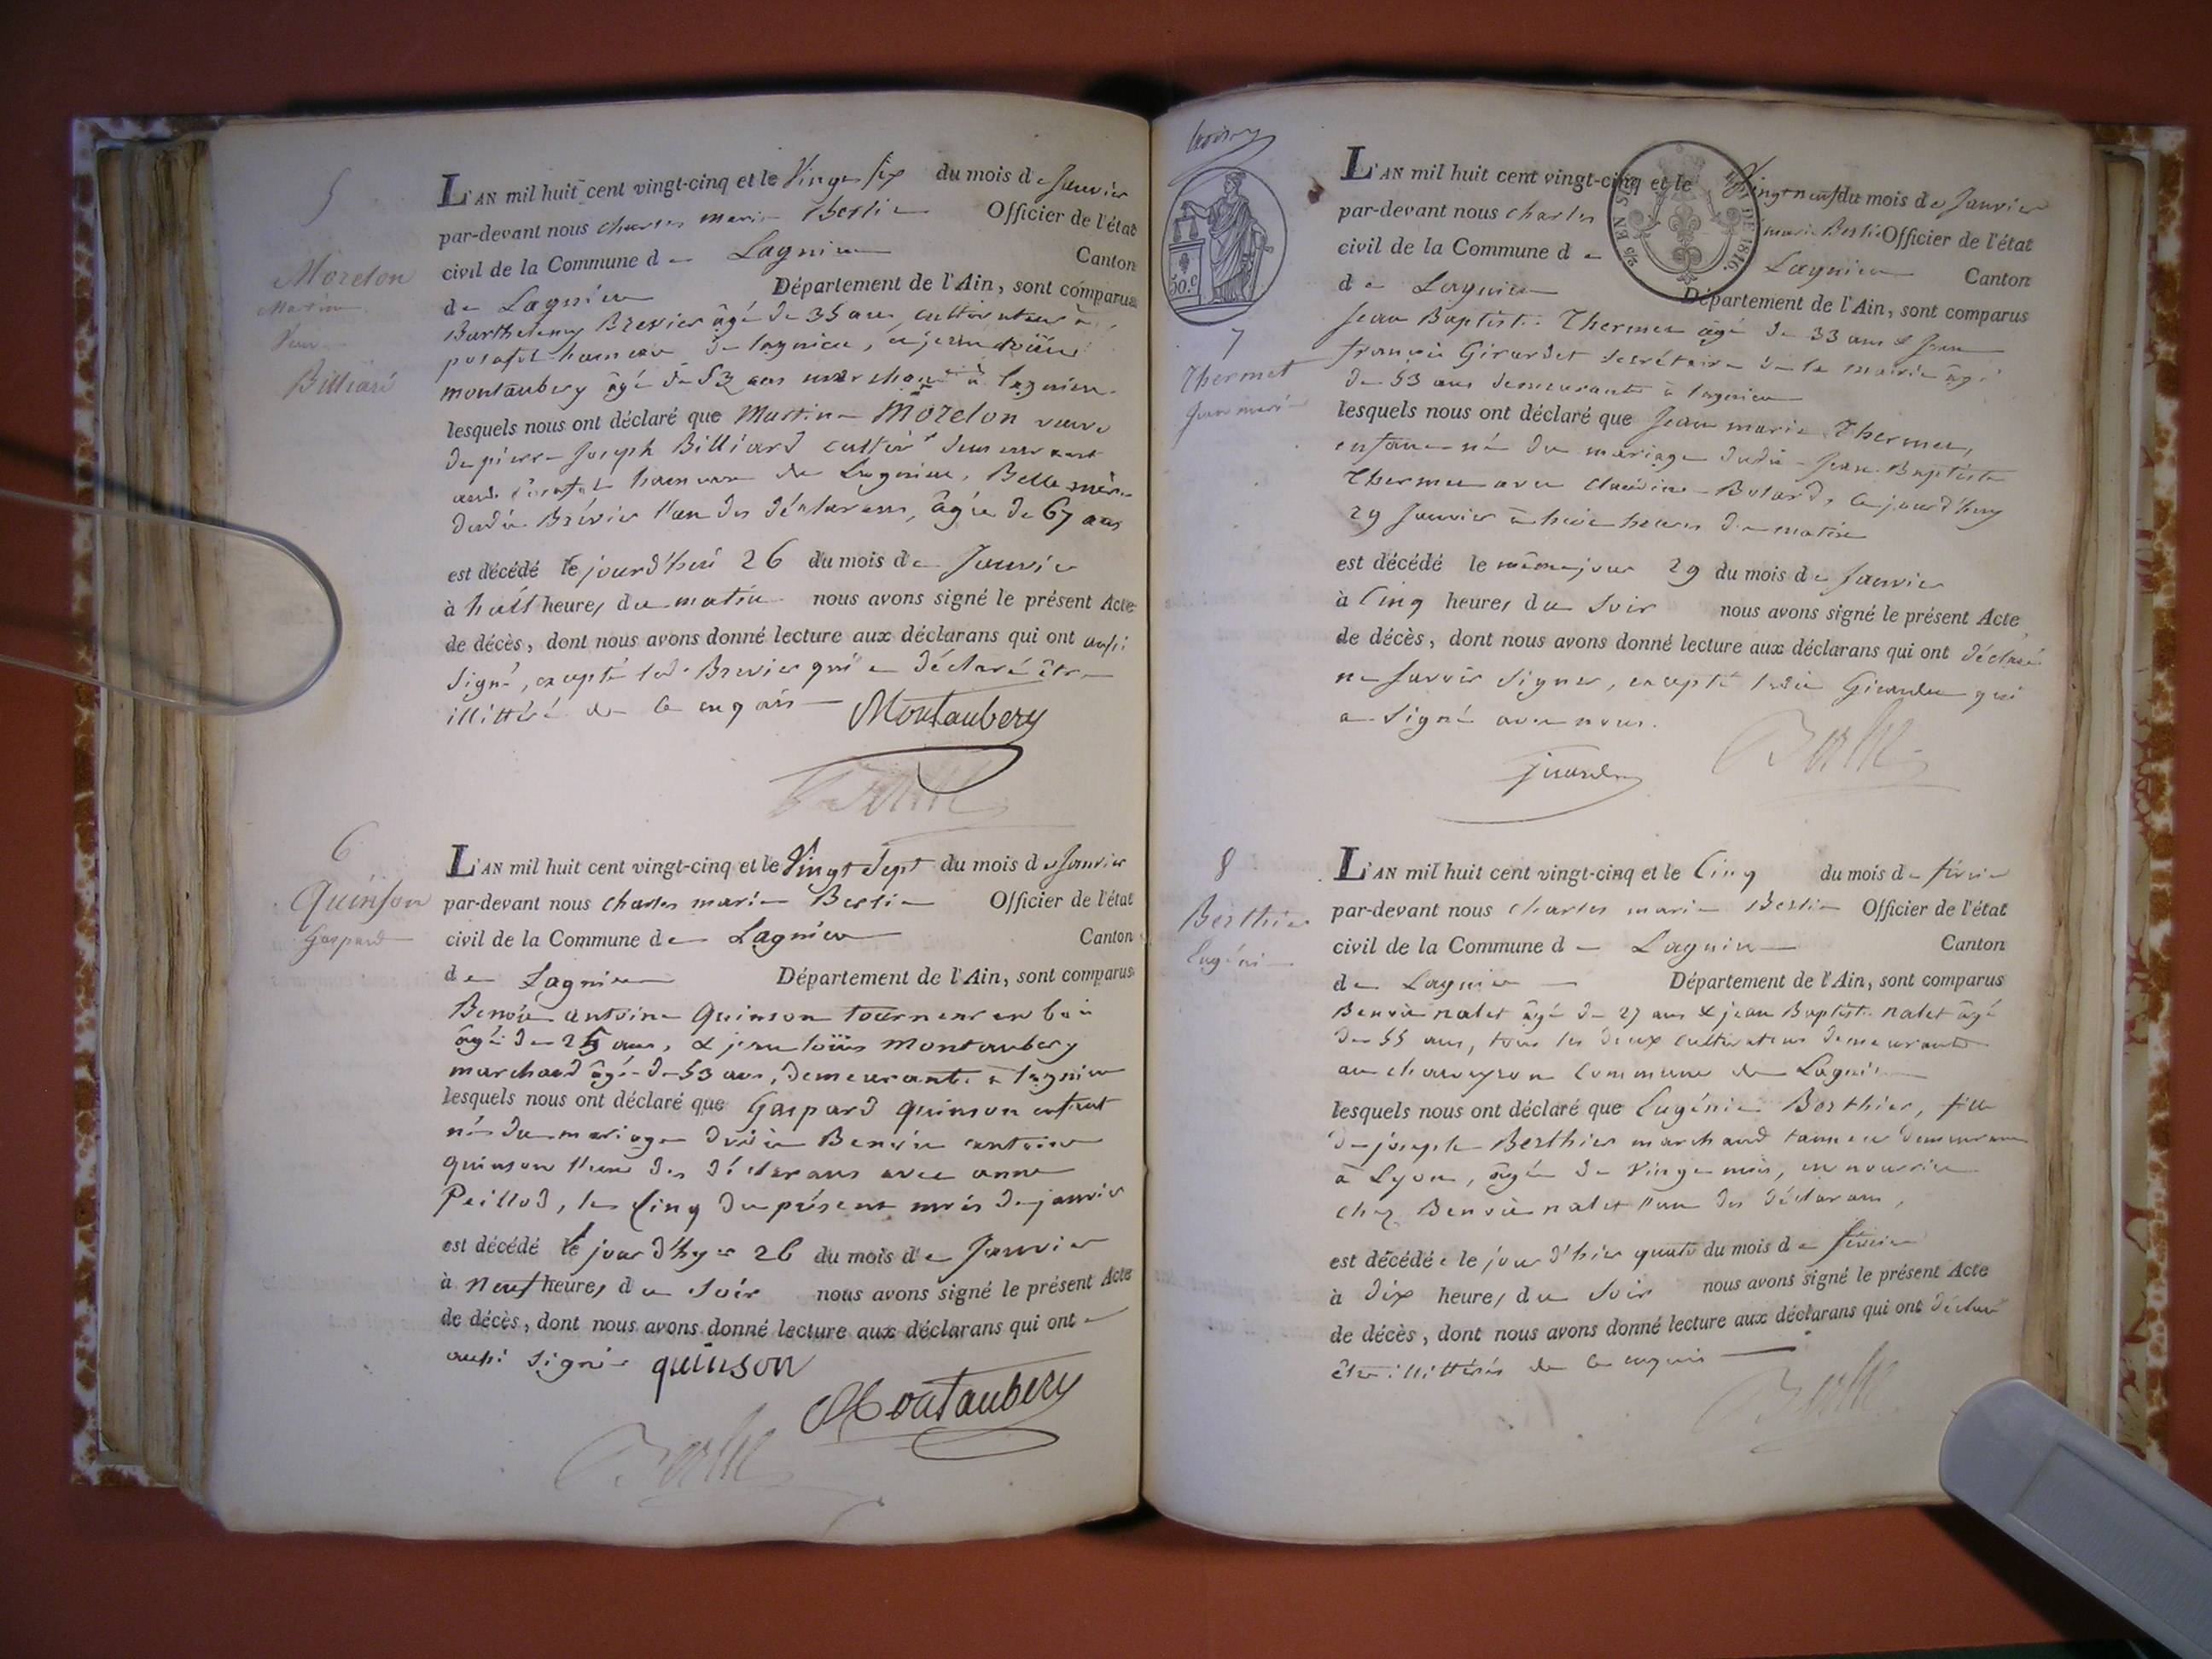 5
Moreton
Martine
Veuve
Billiard
L'AN mil huit cent vingt-cinq et le Vingt six du mois de Janvier
par-devant nous charles marie Berlie Officier de l'état
civil de la Commune de Lagnieu Canton
de Lagnieu Département de l'Ain, sont comparus
Barthelemy Brevier âgé de 35 ans cultivateur à
hameau de lagnieu, & jean louis
montaubery âgé de 53 ans marchand à lagnieu
lesquels nous ont déclaré que Martine Moreton veuve
de pierre Joseph Billiard cultivr demeurant
hameau de Lagnieu, Belle mère
dudit Brévier l'un des déclarans, âgée de 67 ans
est décédé le jourd'hui 26 du mois de Janvier
à huit heures du matin nous avons signé le présent Acte
de décès, dont nous avons donné lecture aux déclarans qui ont aussi
signé, excepté led. Brevier qui a déclaré être
illittéré de ce enquis Montaubery
Berlie
6
Quinson
Gaspard
L'AN mil huit cent vingt-cinq et le Vingt Sept du mois de Janvier
par-devant nous charles marie Berlie Officier de l'état
civil de la Commune de Lagnieu Canton
de Lagnieu Département de l'Ain, sont comparus
Benoit antoine Quinson tourneur en bois
âgé de 25 ans, & jean louis Montaubery
marchand âgé de 53 ans, demeurants à lagnieu
lesquels nous ont déclaré que Gaspard quinson enfant
né du mariage dudit Benoit antoine
quinson l'un des déclarans avec anne
Peillod, le cinq du présent mois de janvier
est décédé le jour d'hyer 26 du mois de Janvier
à neuf heures du soir nous avons signé le présent Acte
de décès, dont nous avons donné lecture aux déclarans qui ont
aussi signé quinson
Montaubery
Berlie
50.c
EN SUS
DE 1816.
7
Thermet
Jean marie
L'AN mil huit cent vingt-cinq et le Vingt neuf du mois de Janvier
par-devant nous charles marie Berlie Officier de l'état
civil de la Commune de Lagnieu Canton
de Lagnieu Département de l'Ain, sont comparus
Jean Baptiste Thermet âgé de 33 ans & Jean
françois Girardet secrétaire de la mairie âgé
de 53 ans demeurants à lagnieu
lesquels nous ont déclaré que Jean marie Thermet,
enfant né du mariage dudit Jean Baptiste
Thermet avec claudine Botard, cejourd'huy
29 Janvier à huit heures du matin
est décédé le même jour 29 du mois de Janvier
à Cinq heures du soir nous avons signé le présent Acte
de décès, dont nous avons donné lecture aux déclarans qui ont déclaré
ne savoir signer, excepté ledit Girardet qui
a signé avec nous.
Girardet
Berlie
8
Berthier
Eugénie
L'AN mil huit cent vingt-cinq et le Cinq du mois de février
par-devant nous charles marie Berlie Officier de l'état
civil de la Commune de Lagnieu Canton
de Lagnieu Département de l'Ain, sont comparus
Benoit nalet âgé de 27 ans & jean Baptiste nalet âgé
de 55 ans, tous les deux cultivateurs demeurants
au charveyron Commune de Lagnieu
lesquels nous ont déclaré que Eugénie Berthier, fille
de joseph Berthier marchand tanneur demeurant
à Lyon, âgée de Vingt mois, en nourrice
chez Benoit nalet l'un des déclarans,
est décédée le jour d'hier quatre du mois de février
à dix heures du soir nous avons signé le présent Acte
de décès, dont nous avons donné lecture aux déclarans qui ont déclaré
être illittérés de ce enquis
Berlie